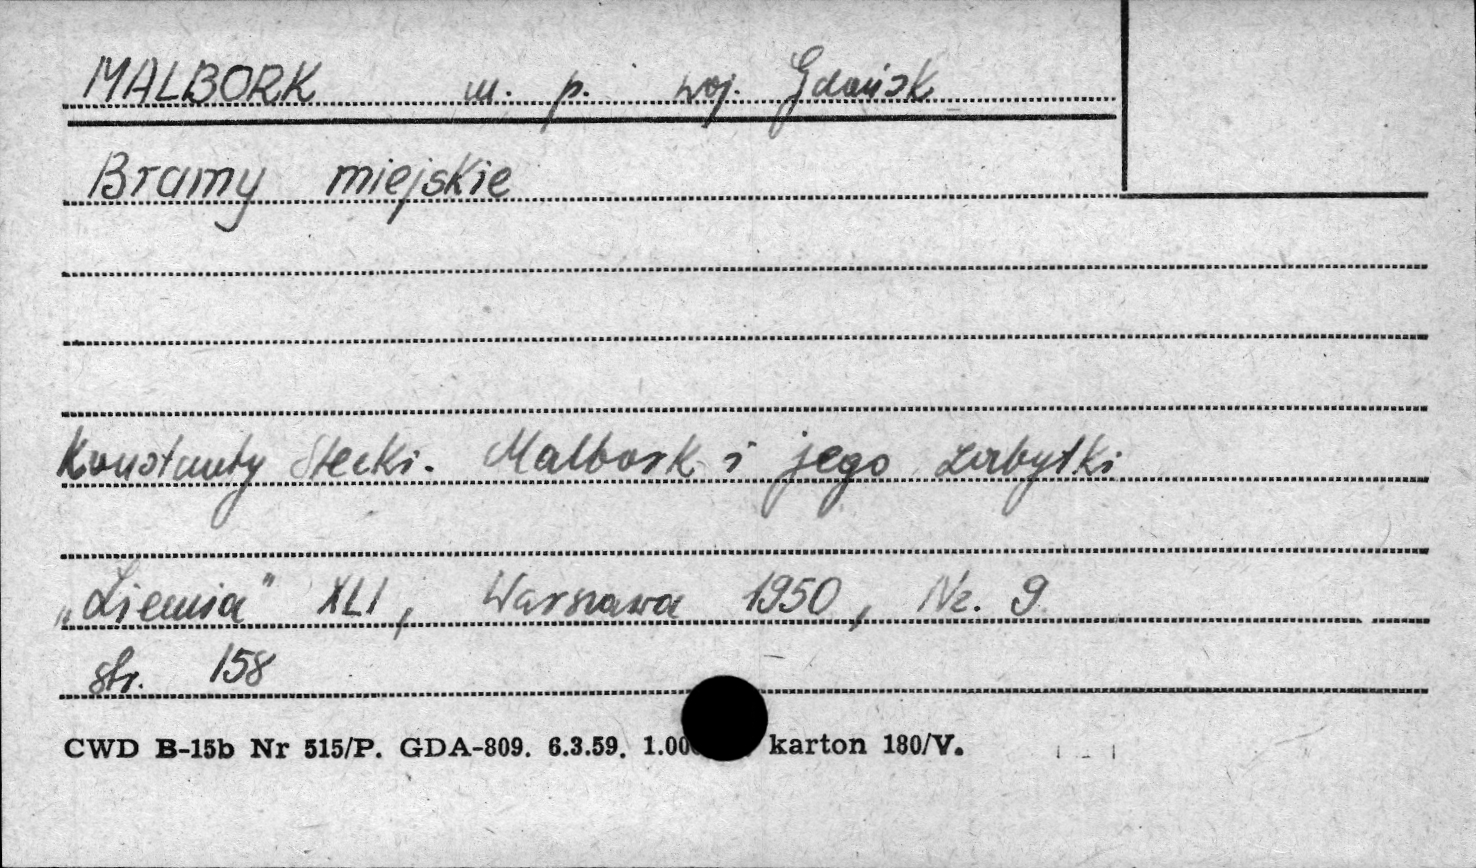 MALBORK m. p. woj. Gdańsk
Bramy miejskie
Konstanty Stecki. Malbork i jego zabytki
„Ziemia" XLI, Warszawa 1950, Nr. 9
str. 158
CWD B-15b Nr 515/P. GDA-809. 6.3.59. karton 180/V.